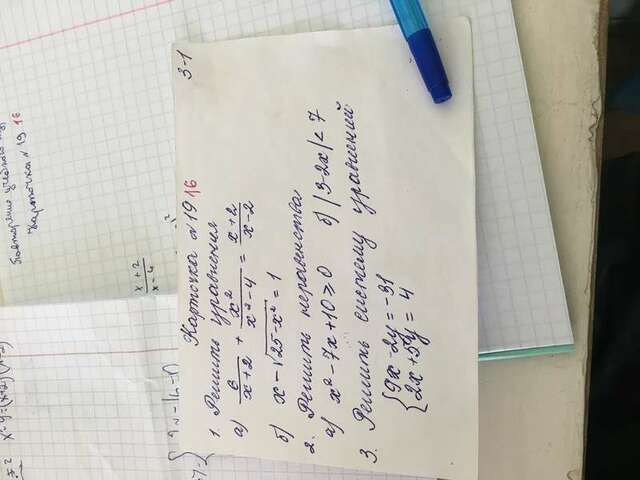 3-1
Карточка №19 16
1. Решить уравнения
а) 6/(x+2) + x²/(x²-4) = (x+2)/(x-2)
б) x-√(25-x²) = 1
2. Решить неравенства
а) x²-7x+10≥0 б) |3-2x|<7
3. Решить систему уравнений
{9x-2y=-31
2x+5y=4
Карточка №19 16
x+2
x-4